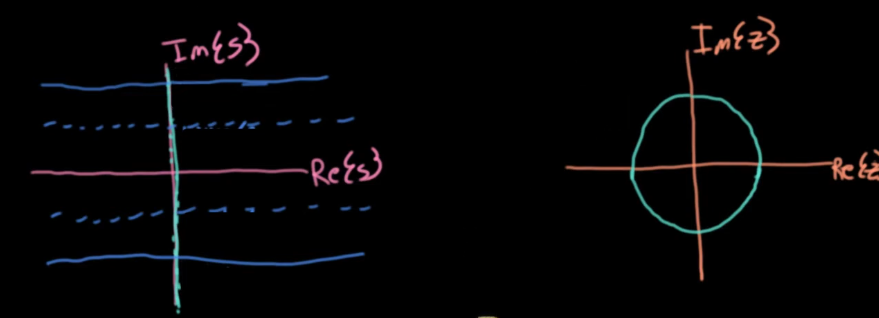 Im{s}
Re{s}
Im{z}
Re{z}